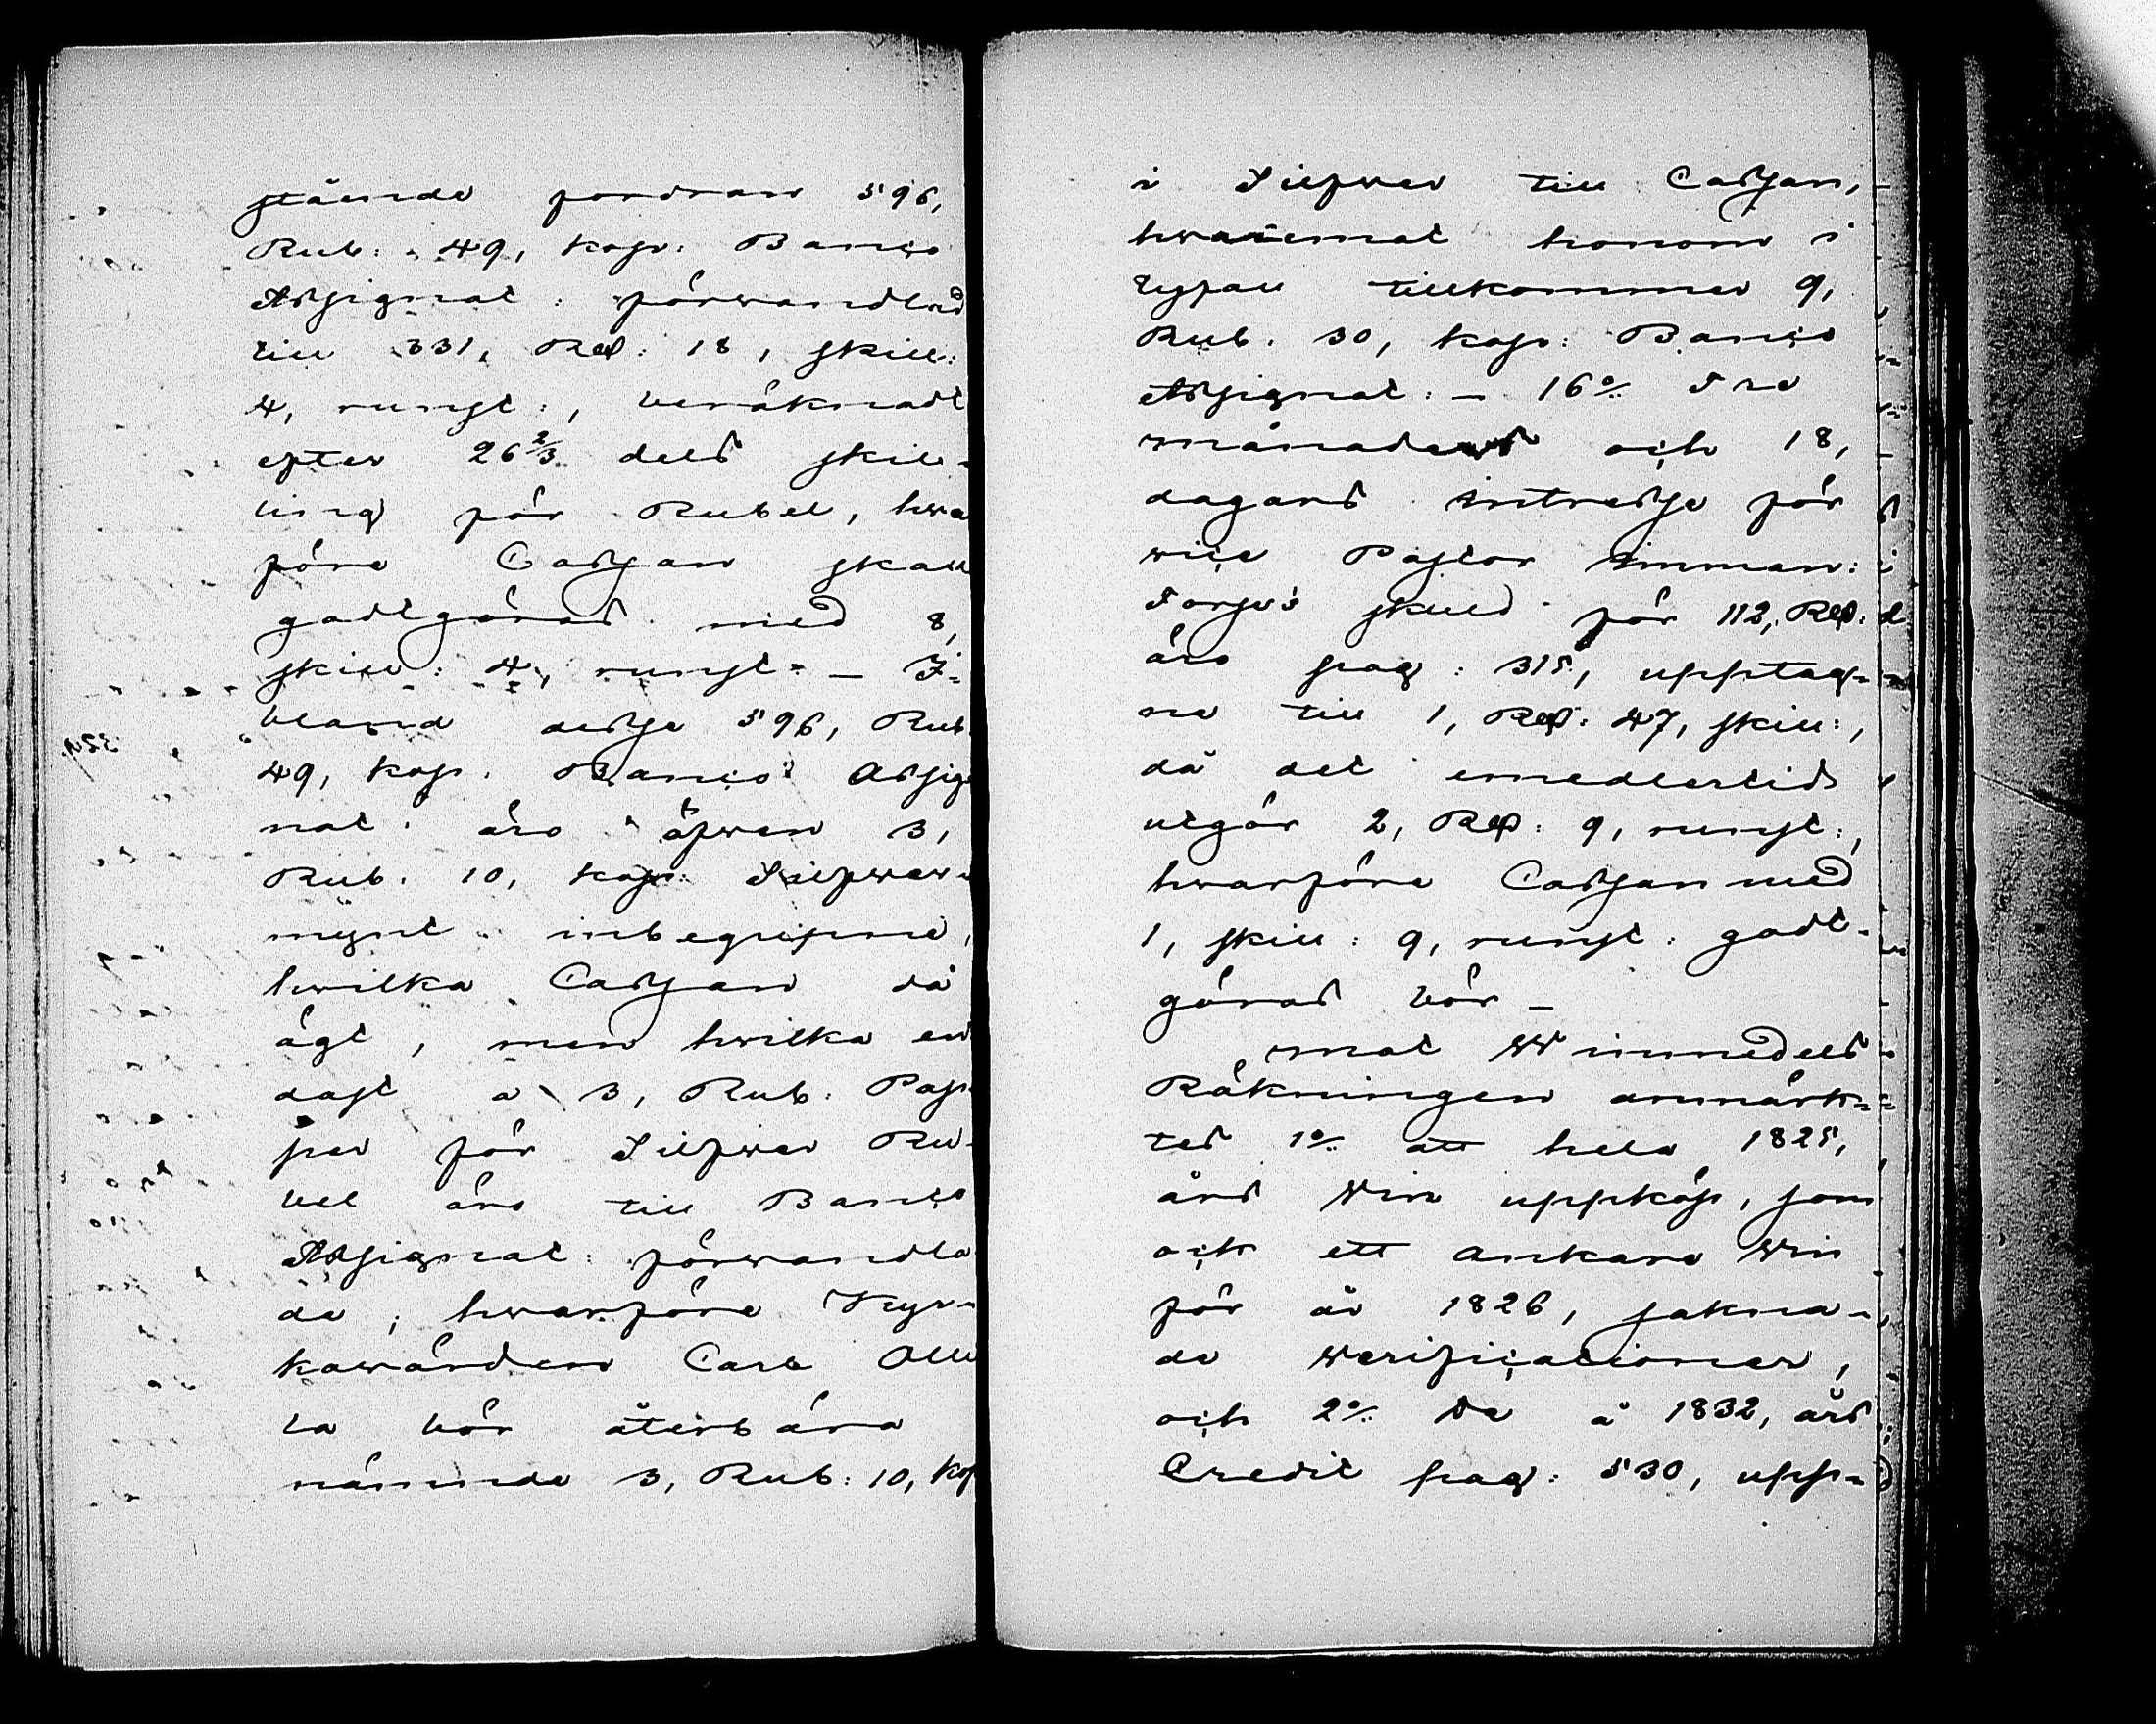 stående fordran 596,
Rub: 49, kop: Banco
Assignat: förwandlad
till 331, Rd: 18, skill:
4, runst:, beräknadt
efter 26 2/3 dels skil-
ling för Rubel, hwa
före Cassan skall
godtgöras med 8,
skill: 4, runst: — I-
bland desse 596, Rub.
49, kop. Banco Assig
nat: äro äfwen 3,
Rub. 10, kop: Silfwer-
mynt inbegripne,
hwilka Cassan då
ägt, men hwilka en
dast a 3, Rub: Pap
per för Silfwer Ru-
bel äro till Banco
Assignat: förwandla
de; hwarföre Kyr-
kowärden Carl Olle
la bör återbära
nämnde 3, Rub: 10, kop
i Silfwer till Cassan,
hwaremot honom i
tyfall tillkommer 9,
Rub. 30, kop: Banco
Assignat: — 16% Tre
månaders och 18,
dagars intresse för
vice Pastor Imman:
skuld för 112, Rd:
äro pag: 315, upptag-
ne till 1, Rd: 47, skill:,
då det emedlertid
utgör 2, Rd: 9, runst:,
hwarföre Cassan med
1, skill: 9, runst: godt-
göras bör —
mot Winmedels
Räkningen anmärk-
tes 1% att hela 1825,
års Win uppköp, som
ock ett ankare Win
för år 1826, sakna-
de Werificationer,
och 2% Da å 1832, års
Credit pag: 530, upp-